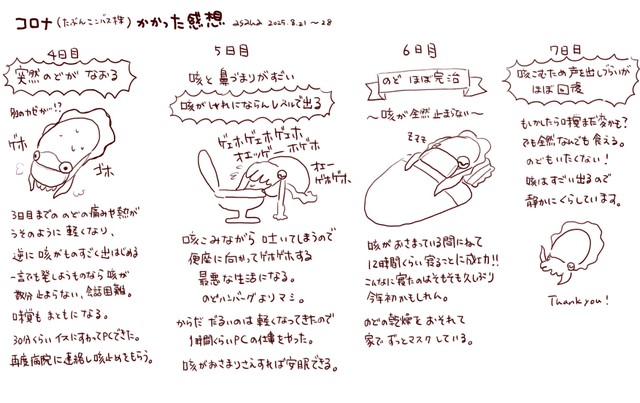 コロナ(たぶんニンバス株)かかった感想 asaka 2025.8.21～28
4日目
突然のどが なおる
別のカゼか!?
ゲホ
ゴホ
3日目までの のどの痛みや熱が
うそのように 軽くなり、
逆に咳がものすごく出はじめる
一言でも発しようものなら 咳が
数分 止まらない、会話困難。
味覚も まともになる。
30分くらい イスにすわってPCできた。
再度病院に連絡し咳止めをもらう。
5日目
咳と 鼻づまりがすごい
咳がけれにならんレベルで出る
ゲェホゲェホゲェホ
オエッゲーホゲホ
オエー
ゲホゲホ
咳こみながら 吐いてしまうので
便座に向かってゲホゲホする
最悪な生活になる。
のどハンバーグよりマシ。
からだ だるいのは 軽くなってきたので
1時間くらいPCの仕事をやった。
咳がおさまりさえすれば安眠できる。
6日目
のど ほぼ完治
～咳が全然 止まらない～
zzz
咳がおさまっている間にねて
12時間くらい寝ることに成功!!
こんなに寝たのはそもそも久しぶり
今年初かもしれん。
のどの乾燥を おそれて
家で ずっとマスク している。
7日目
咳こむため声を出しづらいが
ほぼ回復
もしかしたら味覚まだ変かも?
でも全然なんでも食える。
のどもいたくない!
咳はすごい出るので
静かにくらしています。
Thank you!